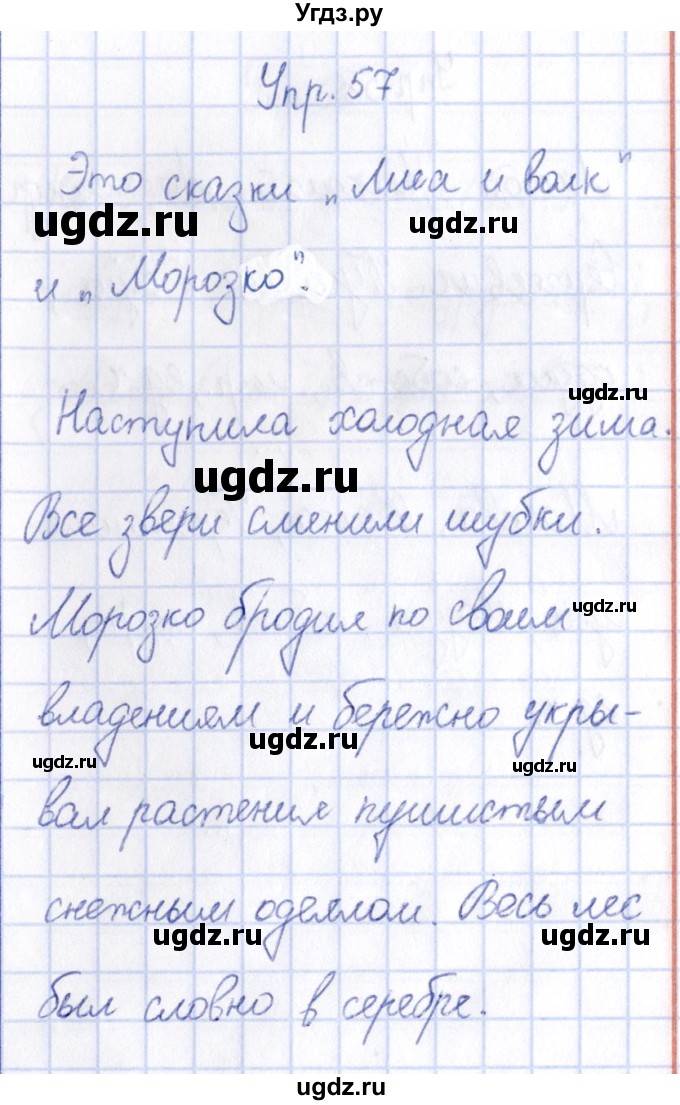 Угдз.ру
Упр. 57
Это сказки „Лиса и волк"
ugdz.ru
ugdz.ru
и „Морозко".
ugdz.ru
Наступила холодная зима.
ugdz.ru
Все звери сменили шубки.
ugdz.ru
Морозко бродил по своим
владениям и бережно укры-
ugdz.ru
ugdz.ru
ugdz.ru
вал растения пушистым
снежным одеялом. Весь лес
ugdz.ru
ugdz.ru
был словно в серебре.
ugdz.ru